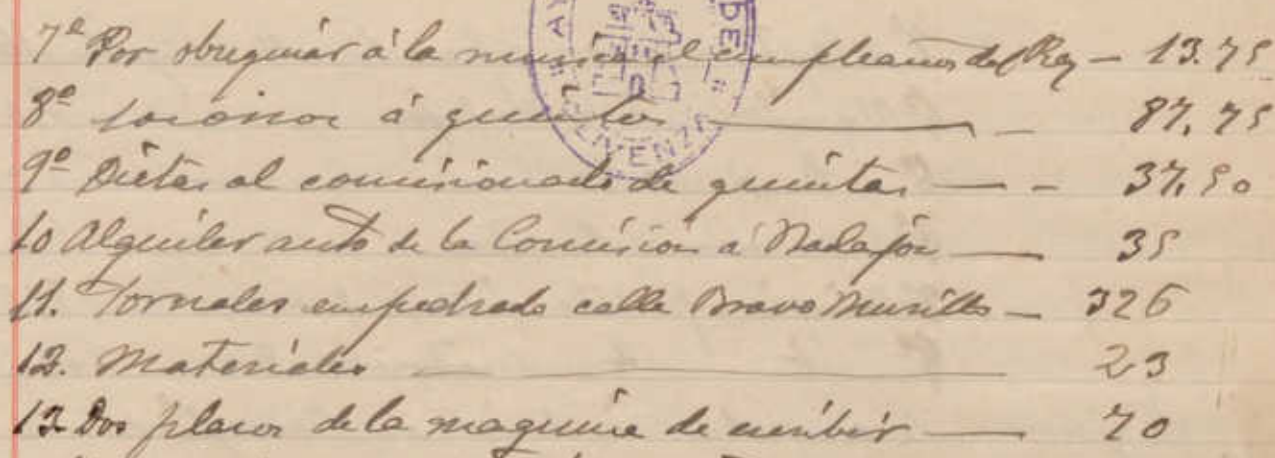 7ª Por obsequiar á la musica el cumpleaños del Rey — 13.75
8ª socorros á quintos — 87.75
9ª Dietas al comisionado de quintas — 37.50
10 Alquiler auto de la Comisión a Badajoz — 35
11. Jornales empedrado calle Bravo Murillo — 326
12. Materiales — 23
13 Dos plazos de la maquina de escribir — 70
AY DE
OLIVENZA